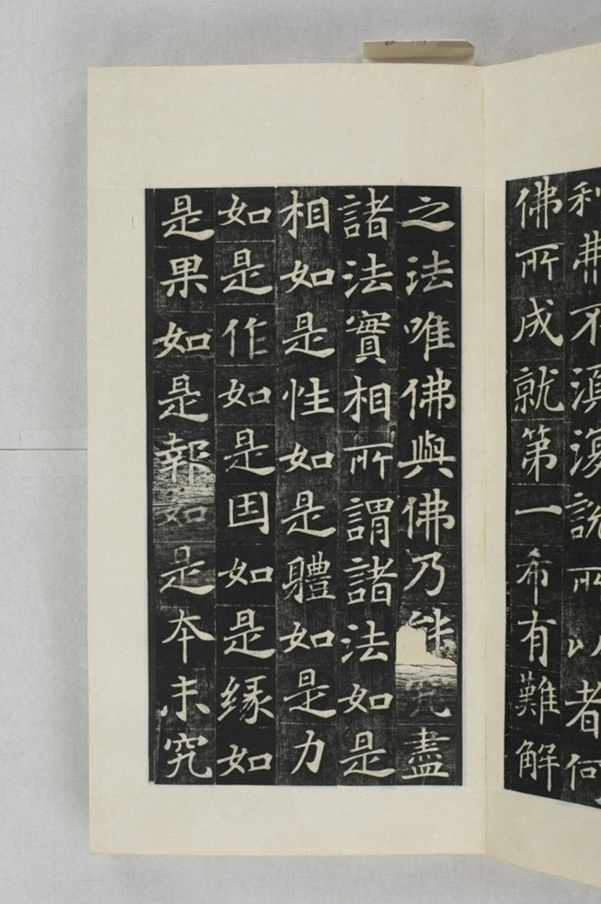 利弗不須復說所以者何
佛所成就第一希有難解
之法唯佛與佛乃能究盡
諸法實相所謂諸法如是
相如是性如是體如是力
如是作如是因如是緣如
是果如是報如是本末究